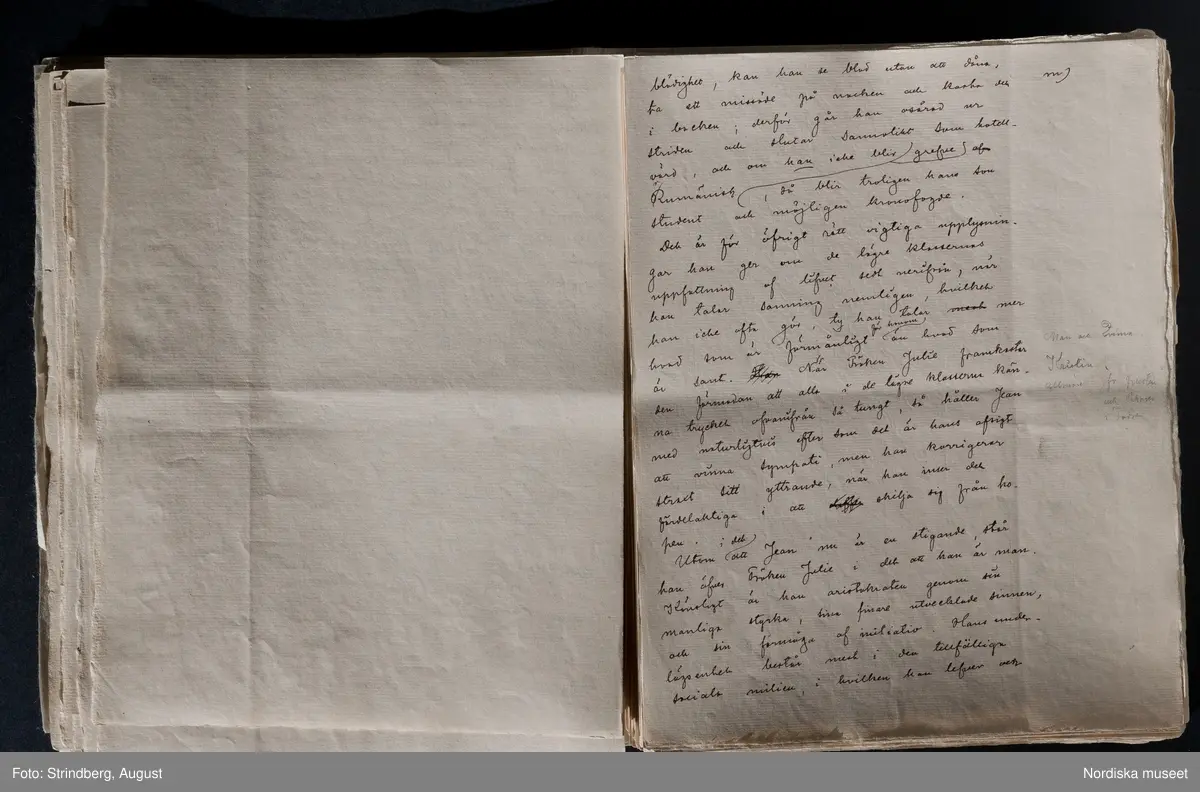 m)
blödighet, kan han se blod utan att dåna,
ta ett missöde på nacken och kasta det
i backen; derför går han osårad ur
striden och slutar sannolikt som hotell-
värd, och om han icke blir grefve af
Rumänisk, så blir troligen hans son
student och möjligen kronofogde.
Det är för öfrigt rätt vigtiga upplysnin-
gar han ger om de lägre klassernas
uppfattning af lifvet sedt nerifrån, när
han talar sanning nemligen, hvilket
han icke ofta gör, ty han talar mer
hvad som är förmånligt för honom än hvad som
är sant. När Fröken Julie framkastar
den förmodan att alla i de lägre klasserna kän-
na trycket ofvanifrån så tungt, så håller Jean
med naturligtvis efter som det är hans afsigt
att vinna sympati, men han korrigerar
strax sitt yttrande, när han inser det
fördelaktiga i att skilja sig från ho-
pen.
Utom i det att Jean nu är en stigande, står
han öfver Fröken Julie i det att han är man.
Könsligt är han aristokraten genom sin
manliga styrka, sina finare utvecklade sinnen,
och sin förmåga af initiativ. Hans under-
lägsenhet består mest i den tillfälliga
sociala milieu, i hvilken han lefver och
Foto: Strindberg, August
Nordiska museet